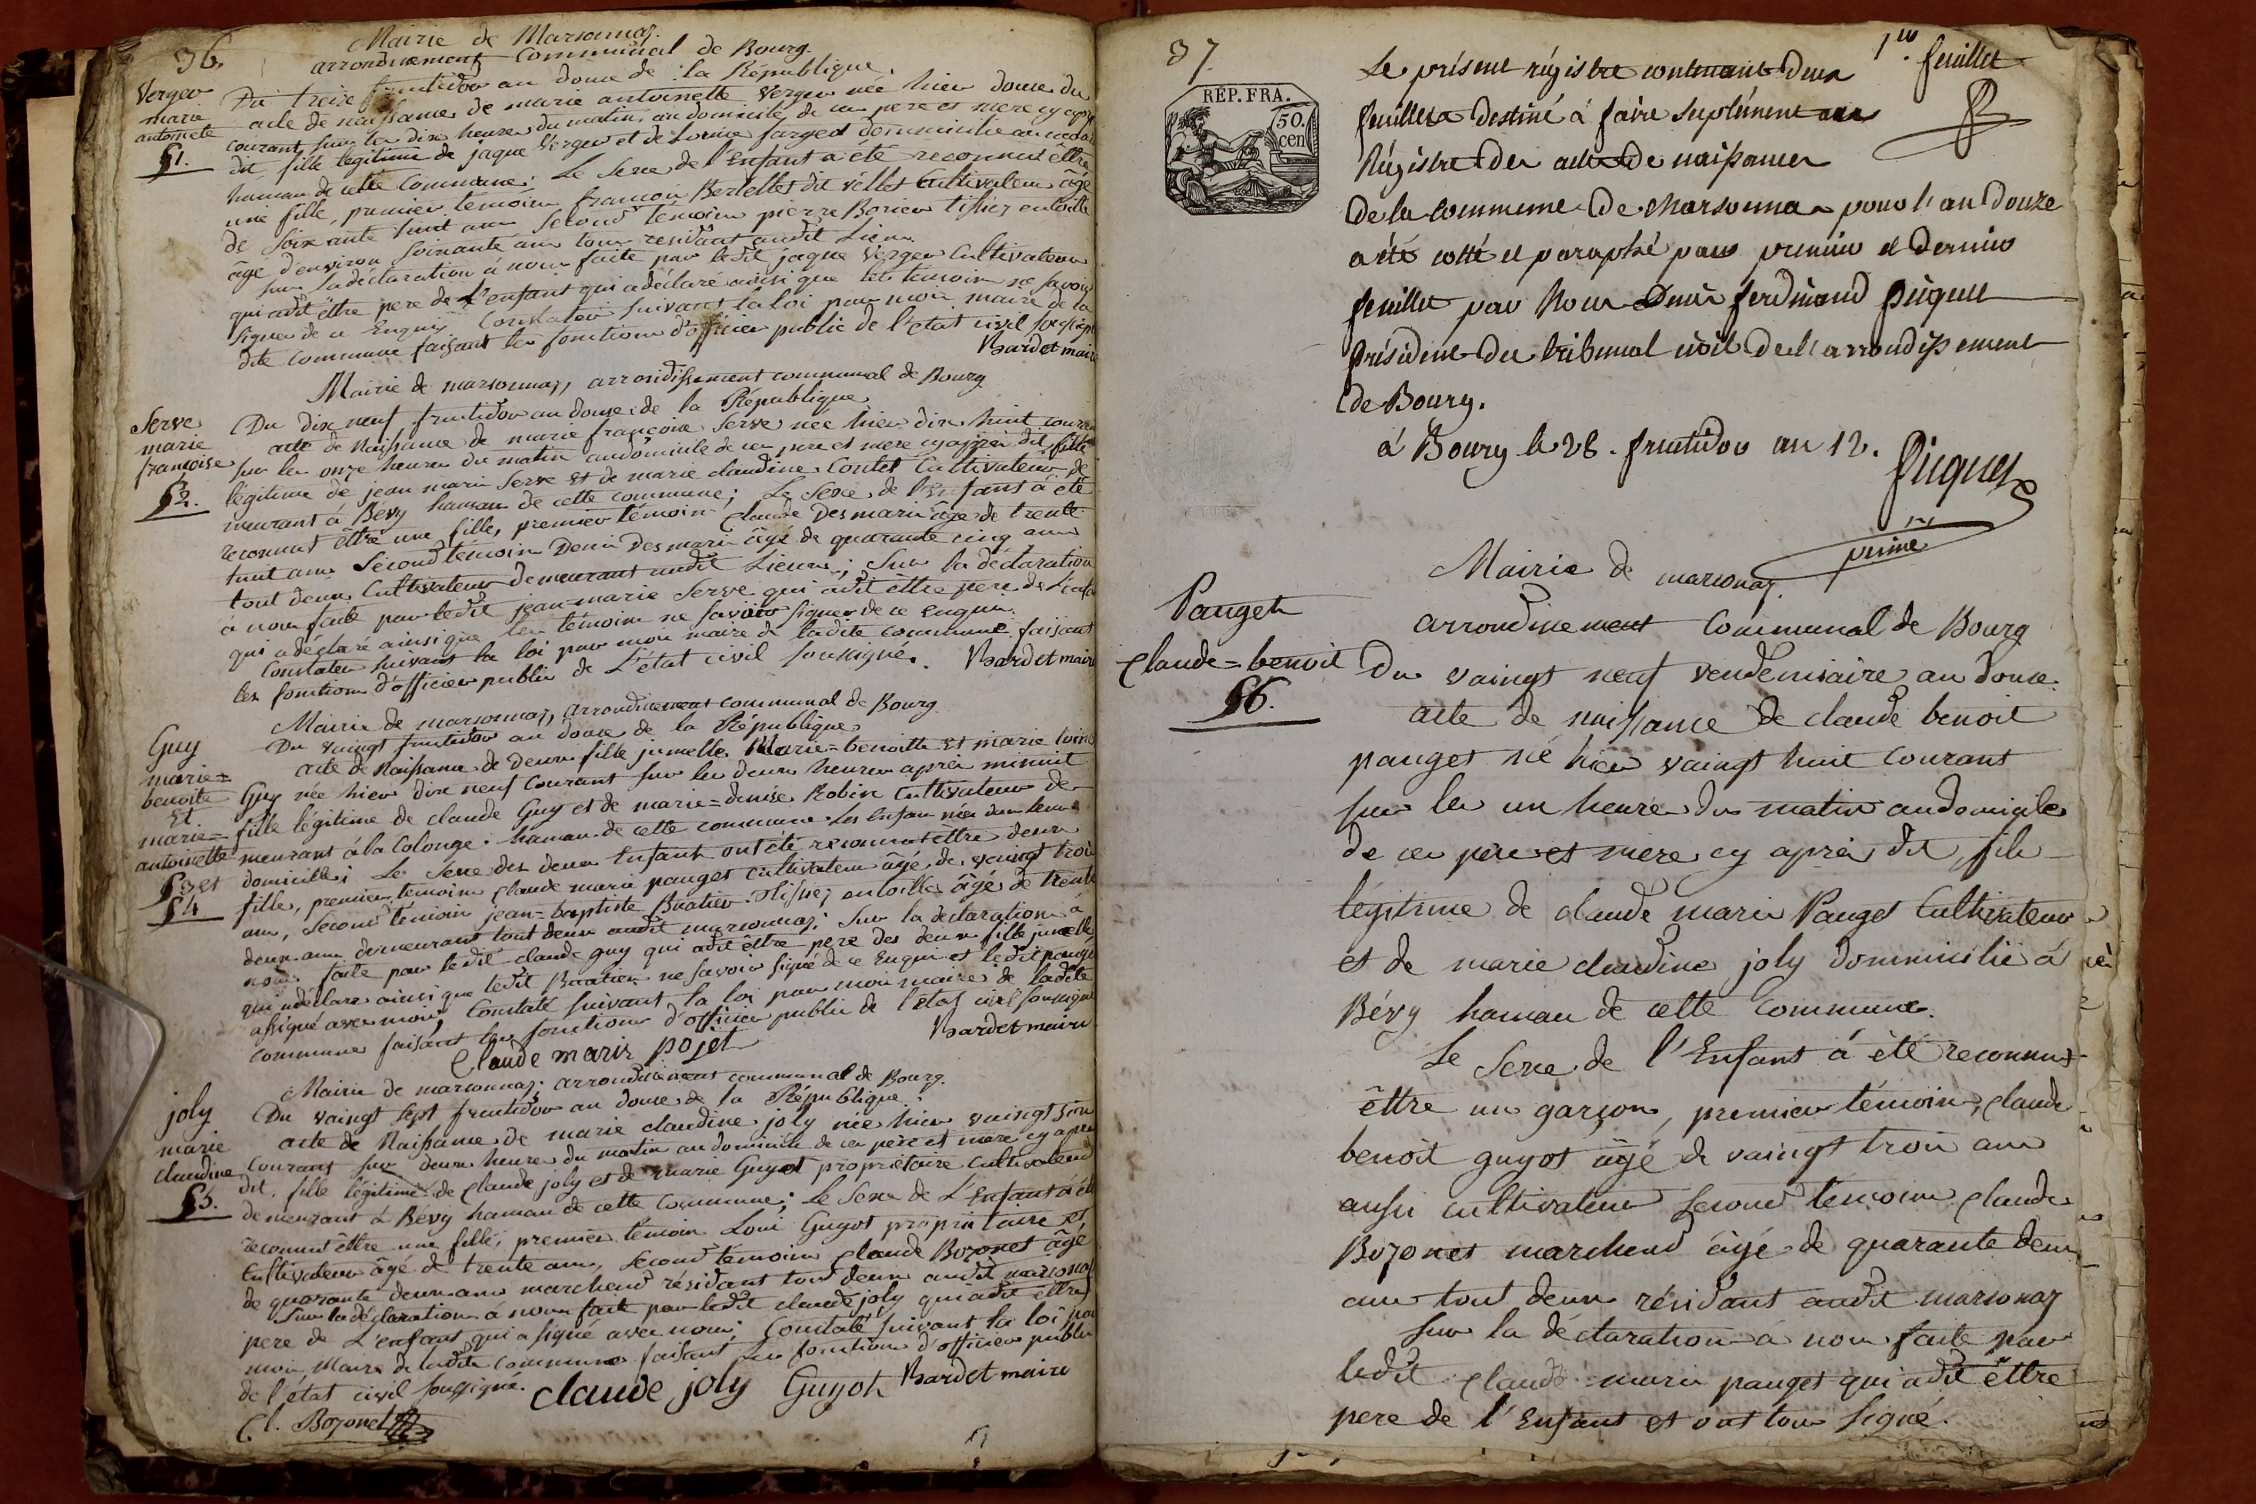 36.
Mairie de Marsonnaz.
arrondissement Communal de Bourg.
Verger
marie
antoinete
51.
Du treize fructidor an douze de la République.
acte de naissance de marie antoinette Verger née hier douze du
courant sur les dix heures du matin, au domicile de ces pere et mere cy après
dit, fille légitime de jaque Verger et de Louise farget dommicilié au
hamau de cette Commune; Le Sexe de l'Enfant a été reconnut êttre
une fille, premier temoin françois Berlellet dit véllet Cultivateur âgé
de Soixante huit ans Second temoin pierre Borier tissier en toille
âgé d'environ Soixante ans tous residant audit Lieu.
Sur la déclaration à nous faite par ledit jaque Verger Cultivateur
qui a dit êttre pere de L'enfant qui a déclaré ainsi que les temoins ne savoir
Signer de ce Enquis. Constater Suivant la loi par moi maire de la
dite commune faisant les fonctions d'officier public de l'état civil Soussigné
Bardet maire
Mairie de marsonnaz, arrondissement communal de Bourg
Serve
marie
françoise
52.
Du dix neuf fructidor an douze de la République,
acte de Naissance de marie françoise Serve née hier dix huit courant
sur les onze heures du matin au domicile de ces pere et mere cy après dit, fille
légitime de jean marie Serve et de marie claudine Contet Cultivateur de
meurant à Bévy hamau de cette commune; Le Sexe de l'Enfant a été
reconnut êttre une fille, premier témoin Claude Desmaris âgé de trente
huit ans Second témoin Denis Desmaris âgé de quarante cinq ans
tout deux Cultivateur demeurant audit Lieux; Sur la déclaration
à nous faite par ledit jean-marie Serve qui a dit êttre pere de L'enfant
qui a déclaré ainsi que les temoins ne savoir signer de ce Enquis.
Constater Suivant la loi par moi maire de ladite commune faisant
les fonctions d'officier public de L'état civil Soussigné. Bardet maire
Mairie de marsonnaz, arrondissement communal de Bourg
Guy
marie=
benoite
Et
marie=
antoinette
53 et
54
Du vaingt fructidor an douze de la République,
acte de Naissance de deux fille jumelle. Marie=benoitte et marie
Guy née hier dix neuf courant sur les deux heures après minuit
fille légitime de claude Guy et de marie=denise Robin Cultivateur de
meurant à la Colonge hamau de cette commune. Les Enfans née dans leurs
domicilles; Le Sexe des deux Enfants ont été reconnut êttre deux
filles, premier, temoin claude marie pauget cultivateur âgé de vaingt trois
ans, Second témoin jean=baptiste Buatier tissier en toille âgé de trente
deux ans demeurant tout deux audit marsonnaz; Sur la declaration à
nous faite par ledit claude guy qui a dit êttre pere des deux fille jumelle
qui a déclaré ainsi que ledit Buatier ne Savoir Signé de ce Enquis et ledit pauget
a signé avec moi; Constaté Suivant la loi par moi maire de ladite
commune faisant les fonctions d'officier public de l'état civil Soussigné
Claude marie pojet Bardet maire
Mairie de marsonnaz; arrondissement communal de Bourg.
joly
marie
claudine
55.
Du vaingt Sept fructidor an douze de la République.
acte de Naissance de marie claudine joly née hier vaingt Six
Courant sur deux heures du matin au domicile de ces pere et mere cy après
dit, fille légitime de Claude joly et de marie Guyot propriétaire cultivateur
demeurant à Bévy hamau de cette Commune; Le Sexe de L'Enfant a été
reconnut êttre une fille; premier temoin Loui Guyot propriétaire et
Cultivateur âgé de trente ans, Second temoin Claude Bozonet âgé
de quarante deux ans marchend résidant tout deux audit marsonaz
Sur la déclaration à nous fait par ledit claude joly qui a dit êttre
pere de L'enfant qui a signé avec nous; Constaté Suivant la loi par
moi Maire de ladite commune faisant les fonctions d'officier public
de l'état civil soussigné. claude joly Guyot Bardet maire
Cl. Bozonet
37.
1er. feuillet
RÉP. FRA.
50.
cen
Le présent régistre contenant deux
feuillets destiné à faire suplément au
Régistre des actes de naissances
de la commune de Marsonnas pour l'an Douze
a été cotté et paraphé par premier et dernier
feuillet par Nous Denis ferdinand Piquet
Président du tribunal civil de l'arrondissement
de Bourg.
à Bourg le 28. fructidor an 12.
Piquet
Mairie de marsonaz.
arrondissement Communal de Bourg
Pauget
Claude=benoit
56.
Du vaingt neuf vendemiaire an douze.
acte de naissance de claude benoit
pauget né hier vaingt huit courant
sur les un heure du matin au domicile
de ces père et mere cy après dit, fils
légitime de claude marie Pauget Cultivateur
et de marie claudine joly dommicilié à
Bévy hamau de cette Commune.
Le Sexe de l'Enfant à été reconnut
êttre un garçon, premier témoin, claude
benoit guyot âgé de vaingt trois ans
aussi cultivateur second témoin claude
Bozonet marchend âgé de quarante deux
ans tout deux résidant audit marsonaz
Sur la déclaration à nous faite par
ledit claude marie pauget qui a dit êttre
pere de l'Enfant et ont tous signé.